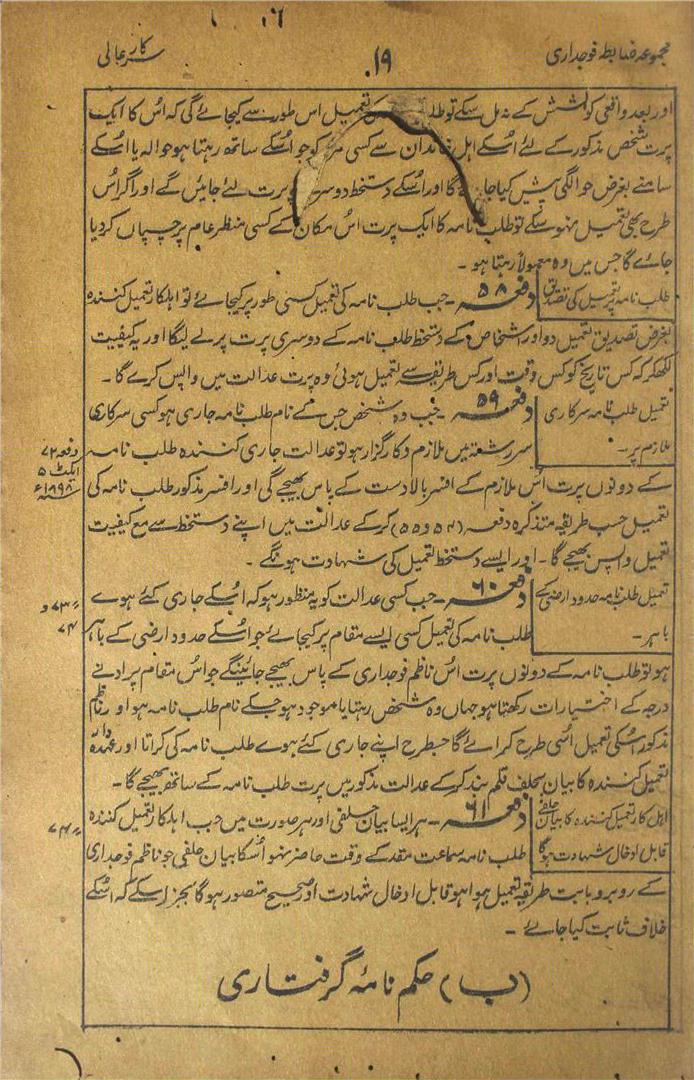 مجموعہ ضابطہ فوجداری
۱۹
سرکار عالی
اور بعد واقعی کوشش کے نہ مل سکے تو تعمیل اس طور سے کیجائے گی کہ اُس کا ایک
پرت شخص مذکور کے لئے اُسکے اہل خاندان سے کسی کو جو اُسکے ساتھ رہتا ہو حوالہ یا اُسکے
سامنے بغرض حوالگی پیش کیا جائے گا اور اُسکے دستخط دوسرے پرت پر لئے جائیں گے اور اگر اُس
طرح بھی تعمیل نہو سکے تو طلب نامہ کا ایک پرت اُس مکان کے کسی منظر عام پر چسپاں کر دیا
جائے گا جس میں وہ معمولاً رہتا ہو ۔
طلب نامہ پر تعمیل کی تصدیق
دفعہ ۵۸ ۔ جب طلب نامہ کی تعمیل کسی طور پر کیجائے تو اہلکار تعمیل کنندہ
بغرض تصدیق تعمیل دو اور اشخاص کے دستخط طلب نامہ کے دوسری پرت پر لے لیگا اور یہ کیفیت
لکھکر کہ کس تاریخ کو کس وقت اور کس طریقہ سے تعمیل ہوئی وہ پرت عدالت میں واپس کرے گا ۔
تعمیل طلب نامہ سرکاری
ملازم پر ۔
دفعہ ۵۹ ۔ جب وہ شخص جس کے نام طلب نامہ جاری ہو کسی سرکاری
سررشتہ میں ملازم و کارگزار ہو تو عدالت جاری کنندہ طلب نامہ
دفعہ ۷۲
ایکٹ ۵
۱۸۹۸ء
کے دونوں پرت اُس ملازم کے افسر بالادست کے پاس بھیجے گی اور افسر مذکور طلب نامہ کی
تعمیل حسب طریقہ متذکرہ دفعہ (۵۴ و ۵۵) کر کے عدالت میں اپنے دستخط سے مع کیفیت
تعمیل واپس بھیجے گا ۔ اور ایسے دستخط تعمیل کی شہادت ہونگے ۔
تعمیل طلب نامہ حدود ارضی کے
باہر ۔
دفعہ ۶۰ ۔ جب کسی عدالت کو یہ منظور ہو کہ اُسکے جاری کئے ہوے
طلب نامہ کی تعمیل کسی ایسے مقام پر کیجائے جو اُسکے حدود ارضی کے باہر
۷۳ و
۷۴
ہو تو طلب نامہ کے دونوں پرت اُس ناظم فوجداری کے پاس بھیجے جائینگے جو اُس مقام پر ادنے
درجہ کے اختیارات رکھتا ہو جہاں وہ شخص رہتا یا موجود ہو جسکے نام طلب نامہ ہو اور ناظم
مذکور اُسکی تعمیل اُسی طرح کرائے گا جسطرح اپنے جاری کئے ہوے طلب نامہ کی کراتا اور عہدہ دار
تعمیل کنندہ کا بیان بحلف قلمبند کر کے عدالت مذکور میں پرت طلب نامہ کے ساتھ بھیجے گا ۔
اہل کار تعمیل کنندہ کا بیان حلفی
قابل ادخال شہادت ہوگا
دفعہ ۶۱ ۔ ہر ایسا بیان حلفی اور ہر صورت میں جب اہلکار تعمیل کنندہ
طلب نامہ سماعت مقدمہ کے وقت حاضر نہو اُسکا بیان حلفی جو ناظم فوجداری
کے روبرو بابت طریقہ تعمیل ہوا ہو قابل ادخال شہادت اور صحیح متصور ہوگا بجز اسکے کہ اُسکے
خلاف ثابت کیا جائے ۔
(ب) حکم نامۂ گرفتاری